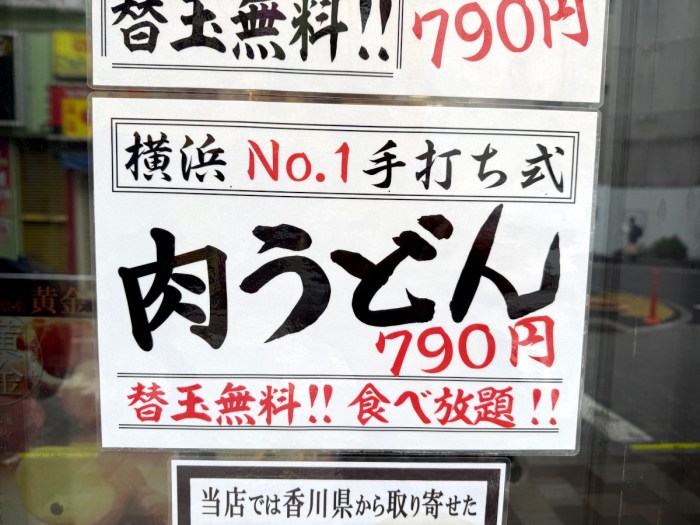 替玉無料!! 790円
横浜 No.1 手打ち式
肉うどん
790円
替玉無料!! 食べ放題!!
当店では香川県から取り寄せた
黄金
黄金